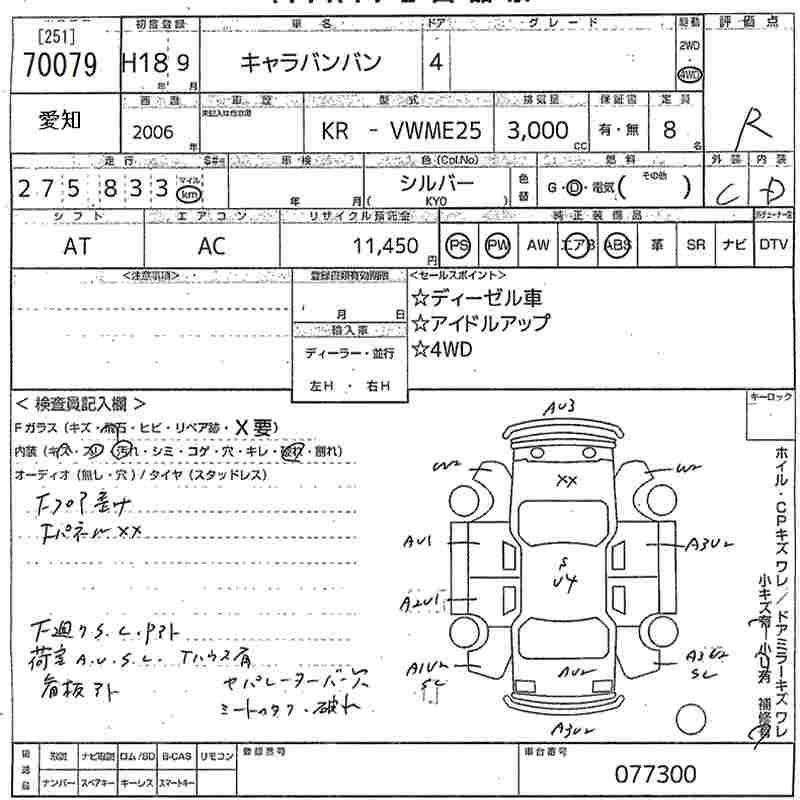 [251]
70079
初度登録
車名
ドア
グレード
駆動
評価点
H18 9
年 月
キャラバンバン
4
2WD
4WD
愛知
西暦
車歴
型式
排気量
保証書
定員
2006
年
未記入は自家用
KR - VWME25
3,000
CC
有・無
8
名
R
走行
車検
色(Col.No)
燃料
外装
内装
275833
マイル
km
年 月
シルバー
( KY0 )
色替
G・D・電気( その他 )
C
D
シフト
エアコン
リサイクル預託金
純正装備品
AT
AC
11,450
円
PS
PW
AW
エアB
ABS
革
SR
ナビ
DTV
<注意事項>
登録書類有効期限
<セールスポイント>
月 日
☆ディーゼル車
☆アイドルアップ
☆4WD
輸入車
ディーラー・並行
左H ・ 右H
< 検査員記入欄 >
キーロック
Fガラス(キズ・飛石・ヒビ・リペア跡・X要)
内装(キズ・スレ・汚れ・シミ・コゲ・穴・キレ・破れ・割れ)
オーディオ(無し・穴)/タイヤ(スタッドレス)
Fパネル XX
荷室 A.U.S.L.
看板アト
セパレーターバー
破れ
AU3
XX
AU1
A3U2
S
U4
A2U1
A1U2
SC
AU2
A3U2
SC
A3U2
ホイル・CPキズワレ/ドアミラーキズワレ
登録番号
車台番号
取説
ナビ取説
ロム/SD
B-CAS
リモコン
ナンバー
スペアキー
キーレス
スマートキー
077300